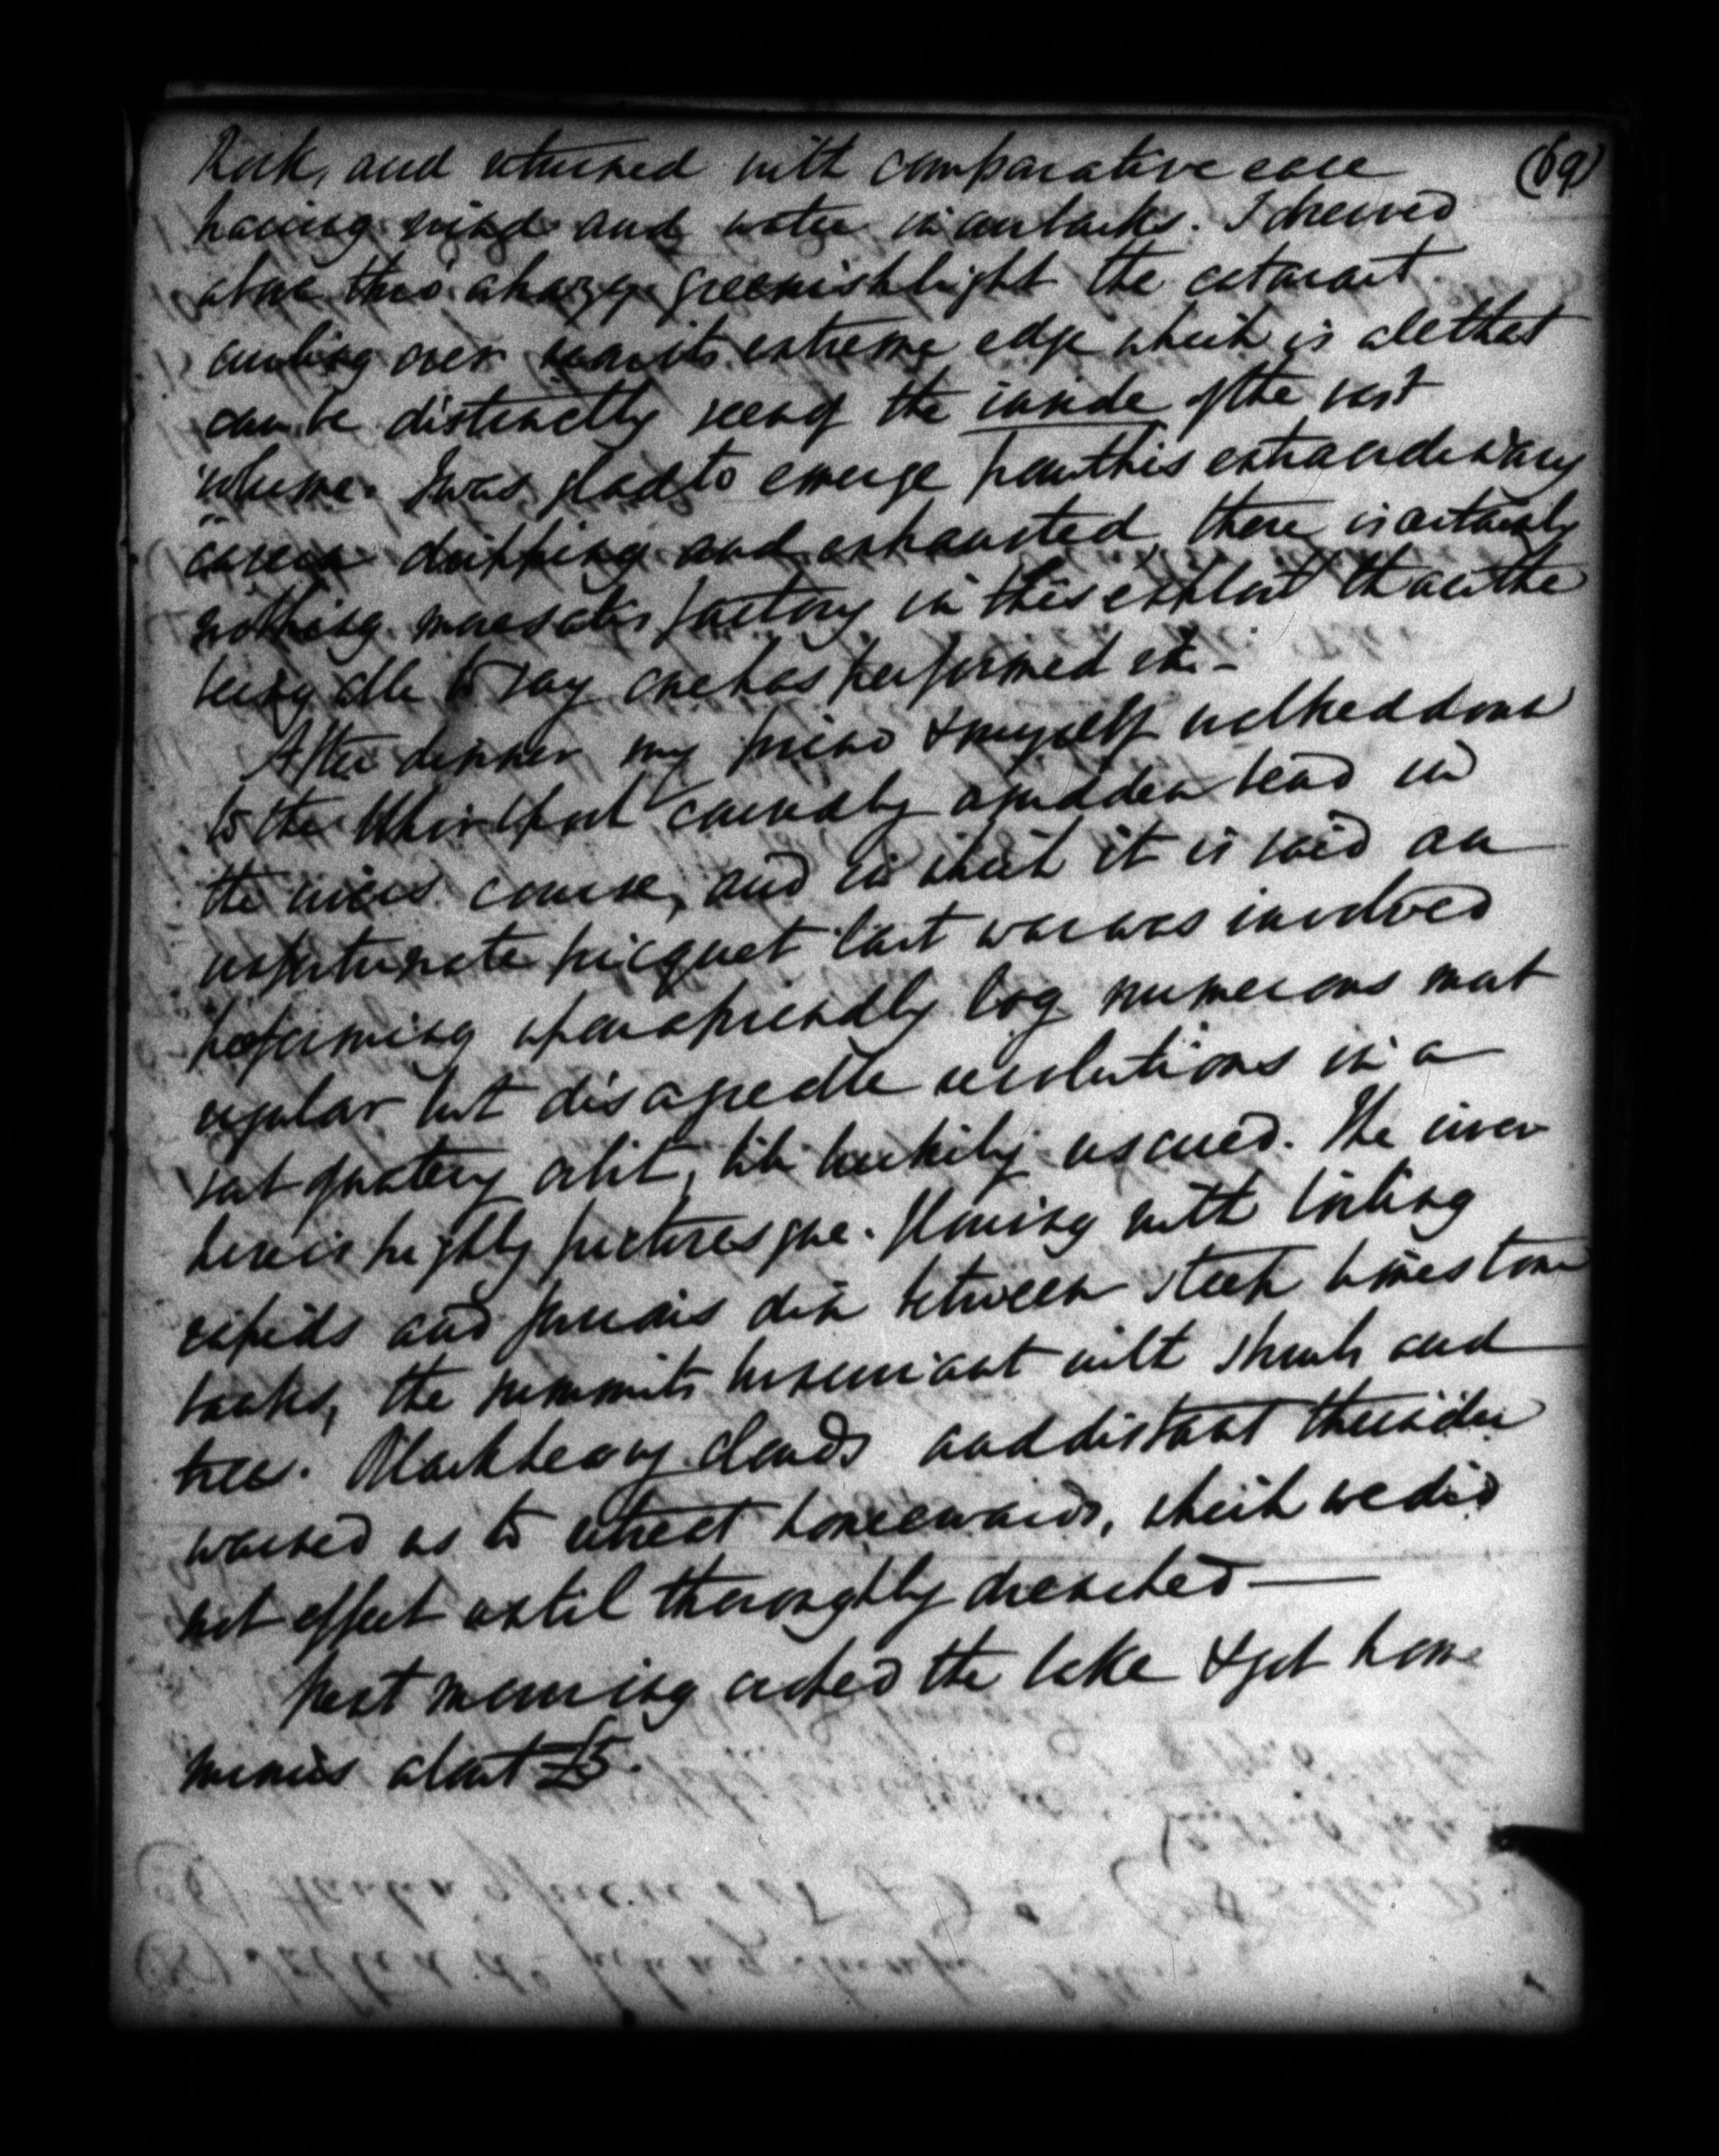 (69)
Rock, and returned with comparative ease
having wind and water in our backs. I observed
above thro' a hazy greenish light the cataract
curling over its extreme edge which is all that
can be distinctly seen of the inside of the vast
volume. I was glad to emerge from this extraordinary
cavern dripping and exhausted, there is certainly
nothing more satisfactory in this exploit than the
being able to say one has performed it. -
After dinner my friend & myself walked down
to the Whirlpool caused by a sudden bend in
the rivers course, and in which it is said an
unfortunate picquet last war was involved
performing upon a friendly log numerous most
regular but disagreeable revolutions in a
sort of watery orbit, till luckily rescued. The river
here is highly picturesque. Flowing with boiling
rapids and furious din between steep limestone
banks, the summits luxuriant with shrubs and
trees. Black heavy clouds and distant thunder
warned us to retreat homewards, which we did
not effect until thoroughly drenched —
Next morning crossed the lake & got home
minus about £5.